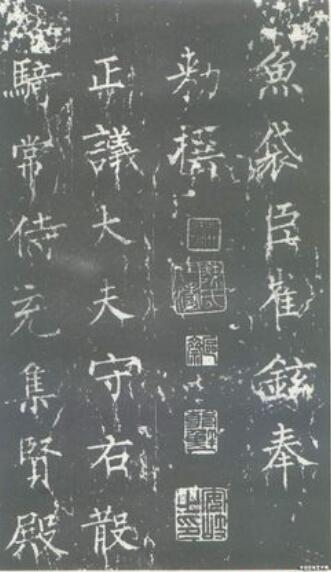 魚袋臣崔鉉奉
敕撰
正議大夫守右散
騎常侍充集賢殿